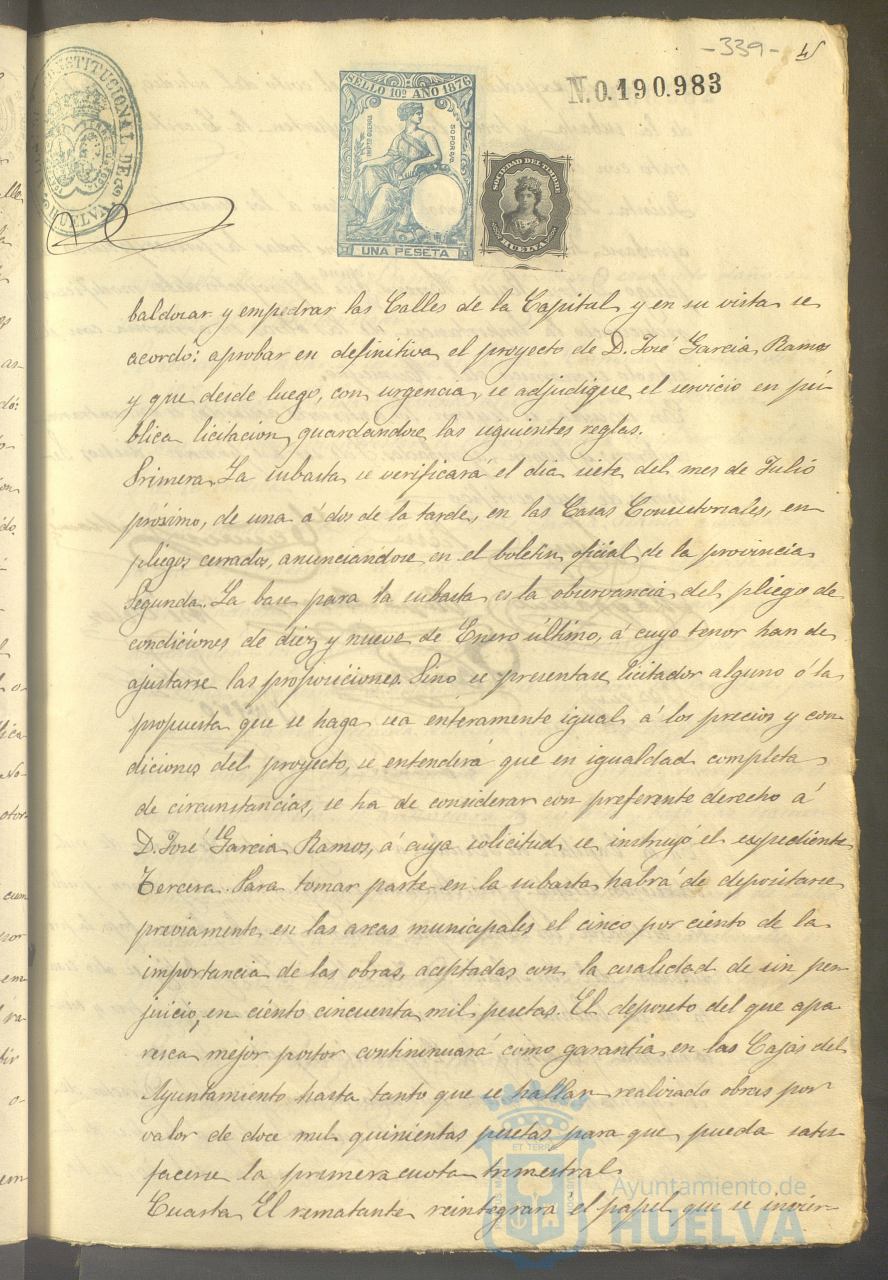 -339- 4
CONSTITUCIONAL DE
HUELVA
SELLO 10º AÑO 1876
IMPTO GUERRA
50 POR %
UNA PESETA
SOCIEDAD DEL TIMBRE
HUELVA
N.0.190.983
baldosar y empedrar las Calles de la Capital, y en su vista se
acordó: aprobar en definitiva el proyecto de D. José Garcia Ramos
y que desde luego, con urgencia, se adjudique el servicio en pú-
blica licitacion, guardandose las siguientes reglas.
Primera. La subasta se verificará el dia siete del mes de Julio
próximo, de una á dos de la tarde, en las Casas Consistoriales, en
pliegos cerrados, anunciandose en el boletin oficial de la provincia
Segunda. La base para la subasta es la observancia del pliego de
condiciones de diez y nueve de Enero último, á cuyo tenor han de
ajustarse las proposiciones. Sino se presentase licitador alguno ó la
propuesta que se haga sea enteramente igual á los precios y con-
diciones del proyecto, se entenderá que en igualdad completa
de circunstancias, se ha de considerar con preferente derecho á
D. José Garcia Ramos, á cuya solicitud se instruyó el expediente
Tercera. Para tomar parte en la subasta habrá de depositarse
previamente en las arcas municipales el cinco por ciento de la
importancia de las obras, aceptadas con la cualidad de sin per-
juicio, en ciento cincuenta mil pesetas. El deposito del que apa-
resca mejor postor continuará como garantia en las Cajas del
Ayuntamiento hasta tanto que se hallan realizado obras por
valor de doce mil quinientas pesetas para que pueda satis-
facerse la primera cuota trimestral.
Cuarta. El rematante reintegrará el papel que se invier-
Ayuntamiento de
HUELVA